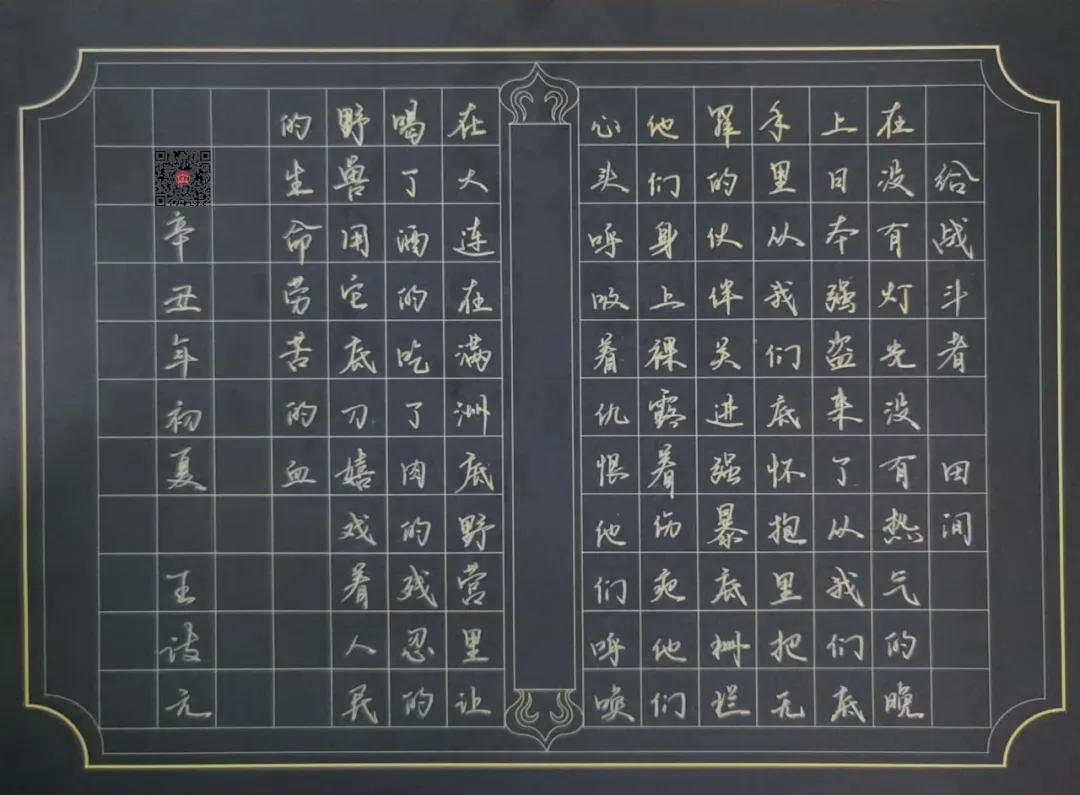 给战斗者 田间
在没有灯光没有热气的晚
上日本强盗来了从我们底
手里从我们底怀抱里把无
罪的伙伴关进强暴底栅栏
他们身上裸露着伤疤他们
心头呼吸着仇恨他们呼唤
在大连在满洲底野营里让
喝了酒的吃了肉的残忍的
野兽用它底刀嬉戏着人民
的生命劳苦的血
辛丑年初夏 王诗元